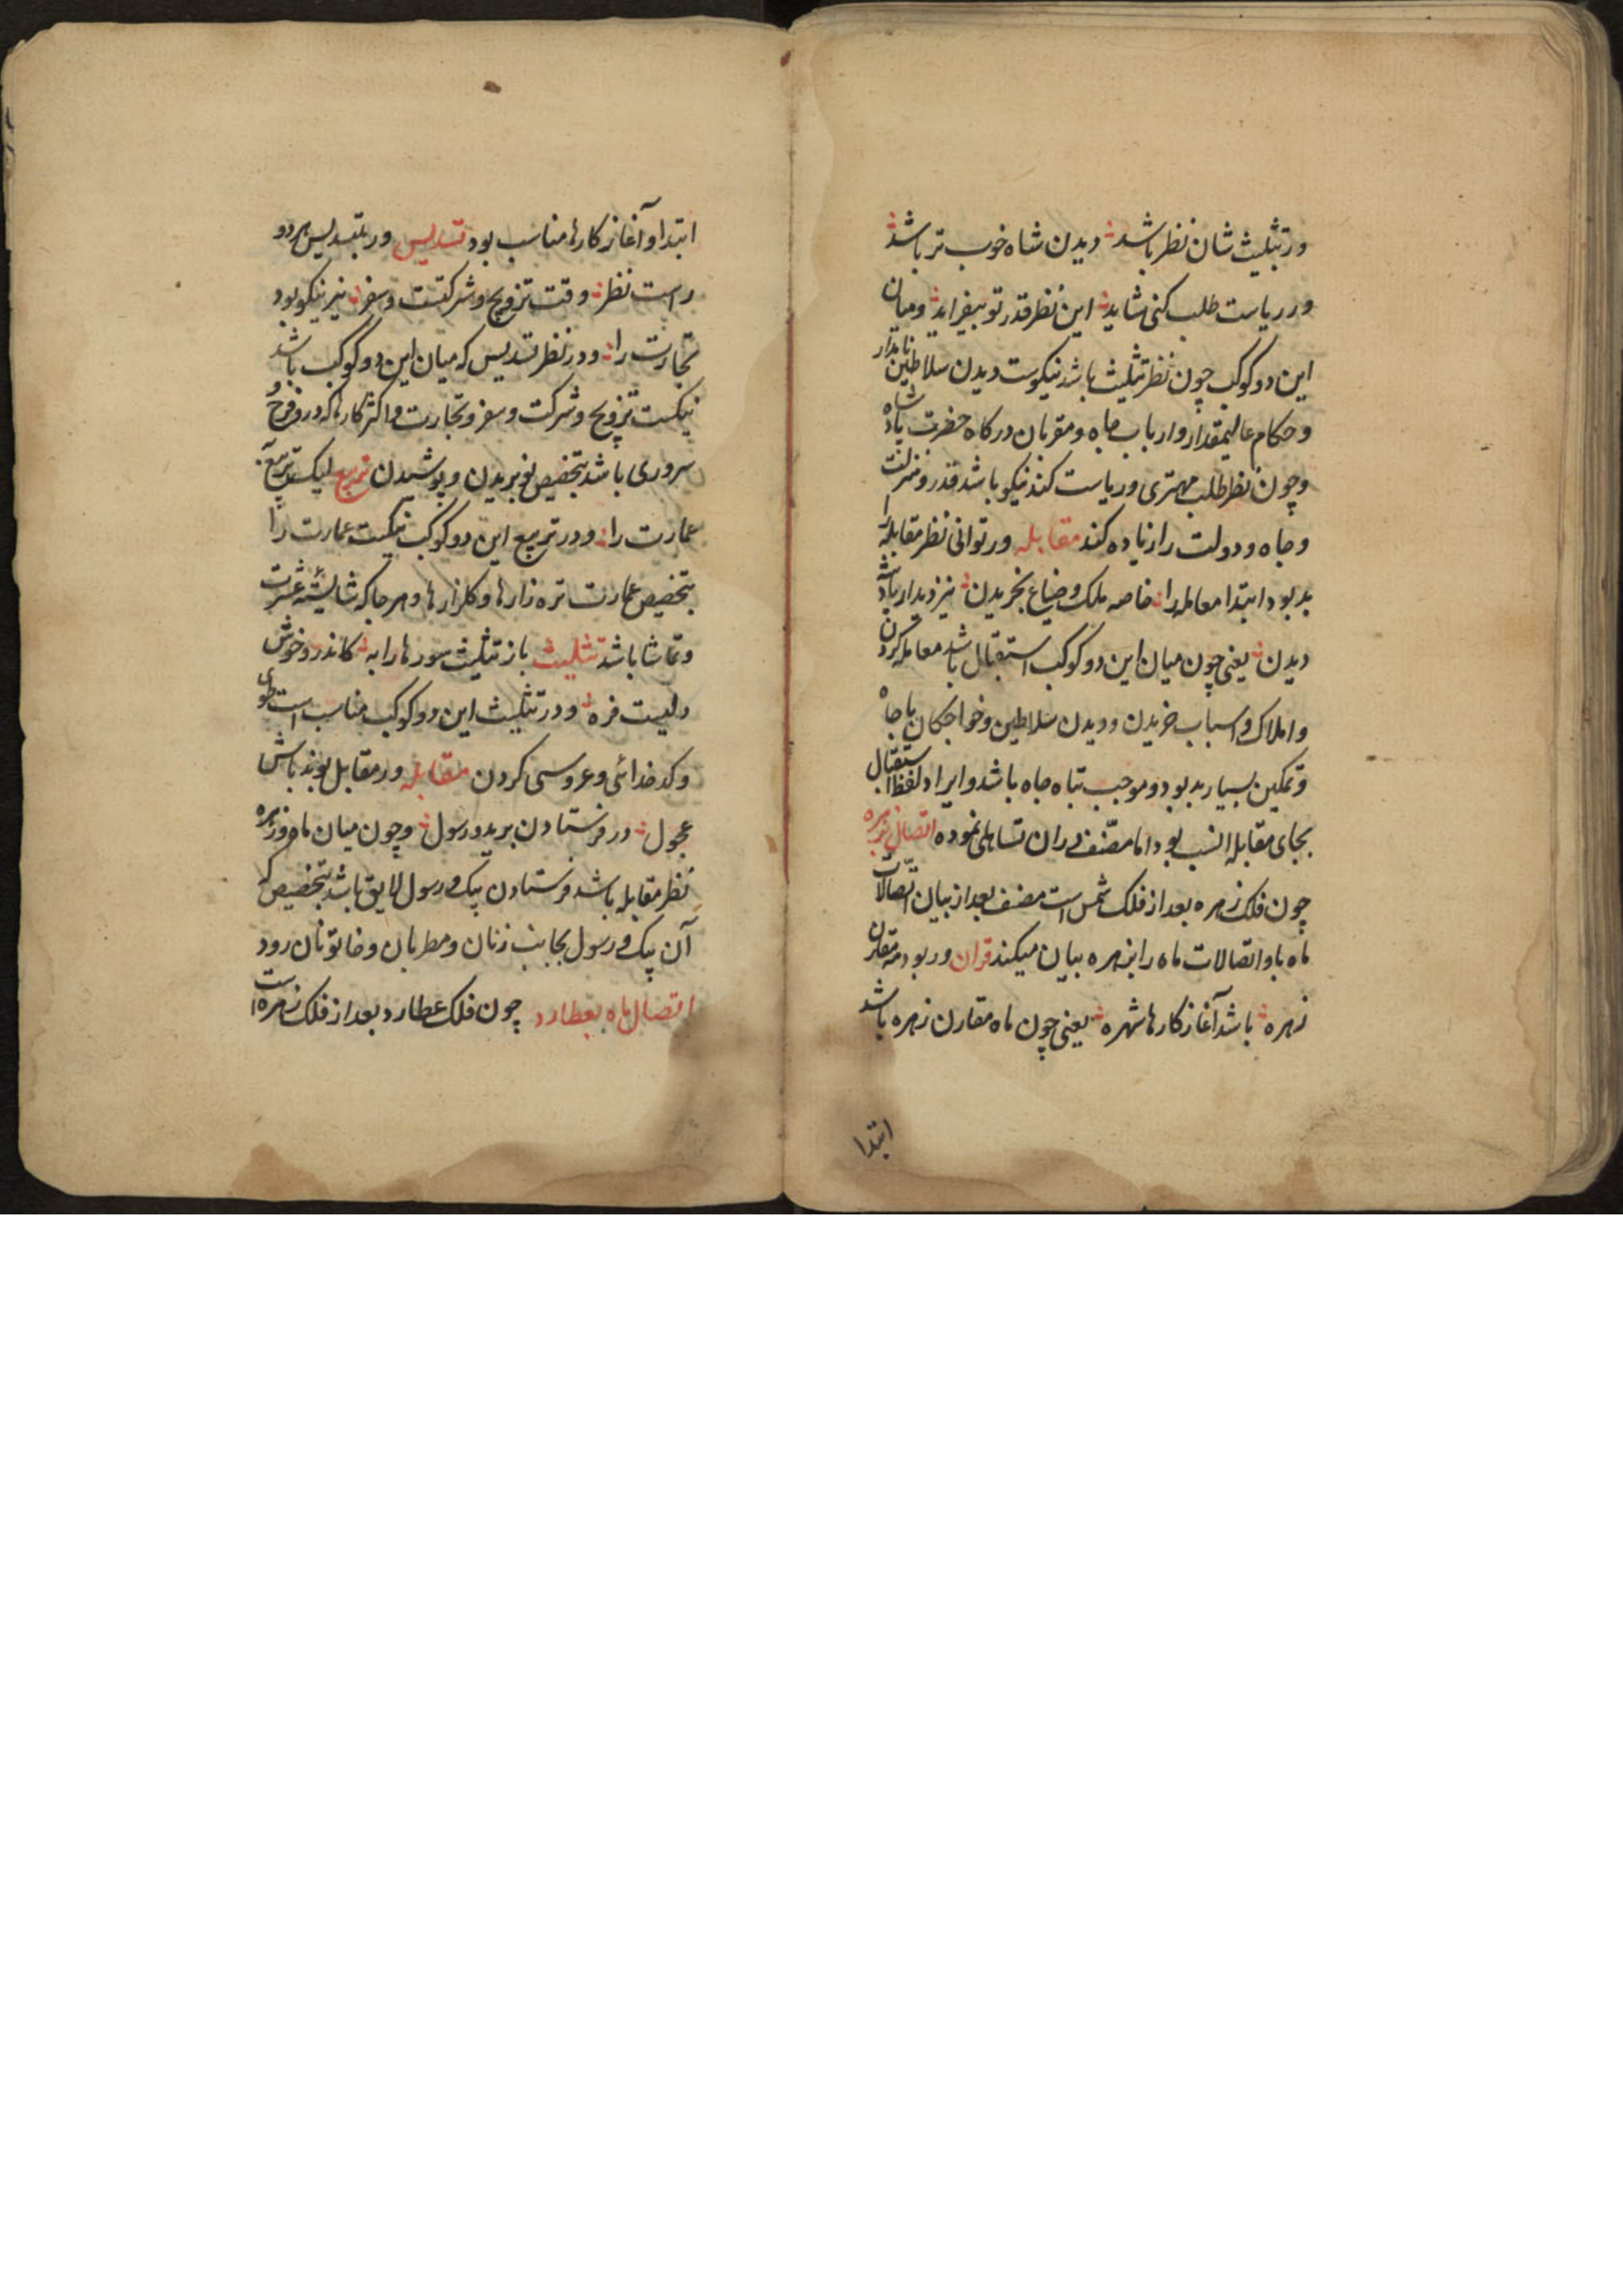 ور بتثلیث شان نظر باشد دیدن شاه خوب تر باشد
ور ریاست طلب کنی شاید این نظر قدر تو بیفزاید ومیان
این دو کوکب چون نظر تثلیث باشد نیکوست دیدن سلاطین نامدار
وحکام عالیمقدار وارباب جاه ومقربان درکاه حضرت پادشاه
وچون نظر طلب مهتری وریاست کند نیکو باشد قدر ومنزلت
وجاه ودولت را زیاده کند مقابله ور توانی نظر مقابله را
بد بود ابتدا معامله را خاصه ملک وضیاع بخریدن نیز دیدار پادشه
دیدن یعنی چون میان این دو کوکب استقبال باشد معامله کردن
واملاک واسباب خریدن ودیدن سلاطین وخواجکان باجاه
وتمکین بسیار بد بود وموجب تباه جاه باشد وایراد لفظ استقبال
بجای مقابله انسب بود اما مصنف دران تساهلی نموده اتصال بزهره
چون فلک زهره بعد از فلک شمس است مصنف بعد از بیان اتصالات
ماه باو اتصالات ماه را بزهره بیان میکند قران ور بود مه مقارن
زهره باشد آغاز کارها شهره یعنی چون ماه مقارن زهره باشد
ابتدا
ابتدا وآغاز کارها مناسب بود تسدیس ور بتسدیس هر دو
راست نظر وقت تزویج وشرکتست وسفر نیز نیکو بود
تجارت را ودر نظر تسدیس که میان این دو کوکب باشد
نیکست تزویج وشرکت وسفر وتجارت واکثر کارها که درو فرح و
سروری باشد بتخصیص نو بریدن وپوشیدن تربیع لیک تربیع
عمارت را ودر تربیع این دو کوکب نیکست عمارت را
بتخصیص عمارت تره زارها وکلزارها وهر جا که شایسته عشرت
وتماشا باشد تثلیث باز تثلیث سورها را به کاندرو خوش
دلیست فره ودر تثلیث این دو کوکب مناسب است طوی
وکدخدائی وعروسی کردن مقابله ور مقابل بوند باش
عجول در فرستادن برید ورسول وچون میان ماه وزهره
نظر مقابله باشد فرستادن پیک ورسول لایق باشد بتخصیص که
آن پیک ورسول بجانب زنان ومطربان وخاتونان رود
اتصال ماه بعطارد چون فلک عطارد بعد از فلک زهره است